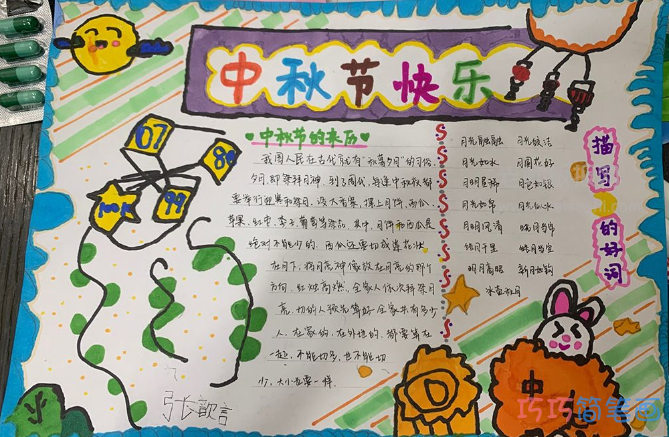 中秋节快乐
中秋节的来历
我国人民在古代就有"秋暮夕月"的习俗。
夕月,即祭拜月神。到了周代,每逢中秋夜都
要举行迎寒和祭月。设大香案,摆上月饼、西瓜、
苹果、红枣、李子、葡萄等祭品,其中,月饼和西瓜是
绝对不能少的。西瓜还要切成莲花状。
在月下,将月亮神像放在月亮的那个
方向,红烛高燃,全家人依次拜祭月
亮,切的人预先算好全家共有多少
人,在家的,在外地的,都要算在
一起,不能切多,也不能切
少,大小也要一样。
月光如水
月明星稀
月明风清
皓月千里
明月高照
月光皎洁
月圆花好
皓月当空
描写
的好词
07
99
中
巧巧简笔画